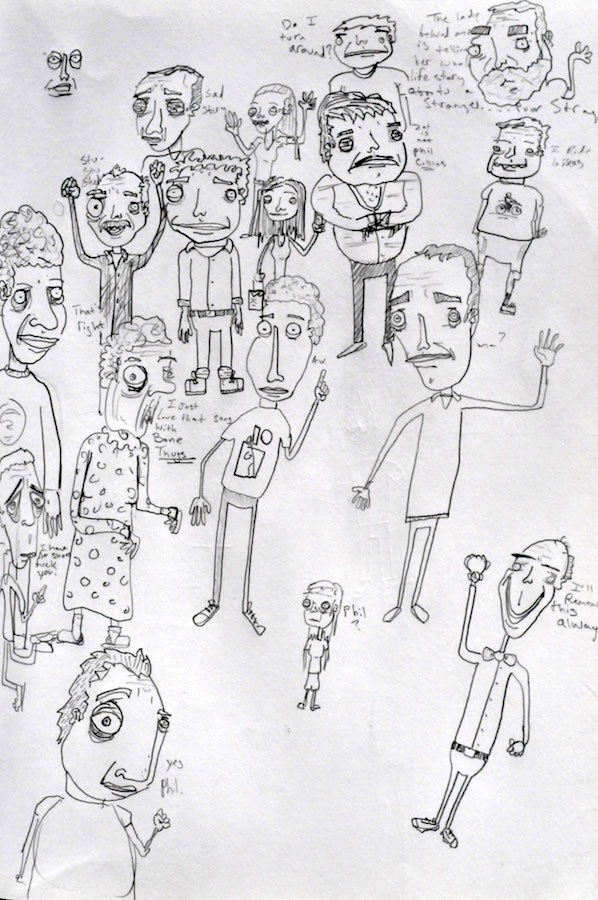 Do I
turn
around?
The lady
behind me
is telling
her whole
life story
to a
Stranger.
Sad
Story
not
is
not
phil
Collins
I Ride
bikes
That's
right
I Just
Love that song
With
Bone
Thugs
fuck
you.
Phil
?
I'll
Remember
this
always
yes
phil.